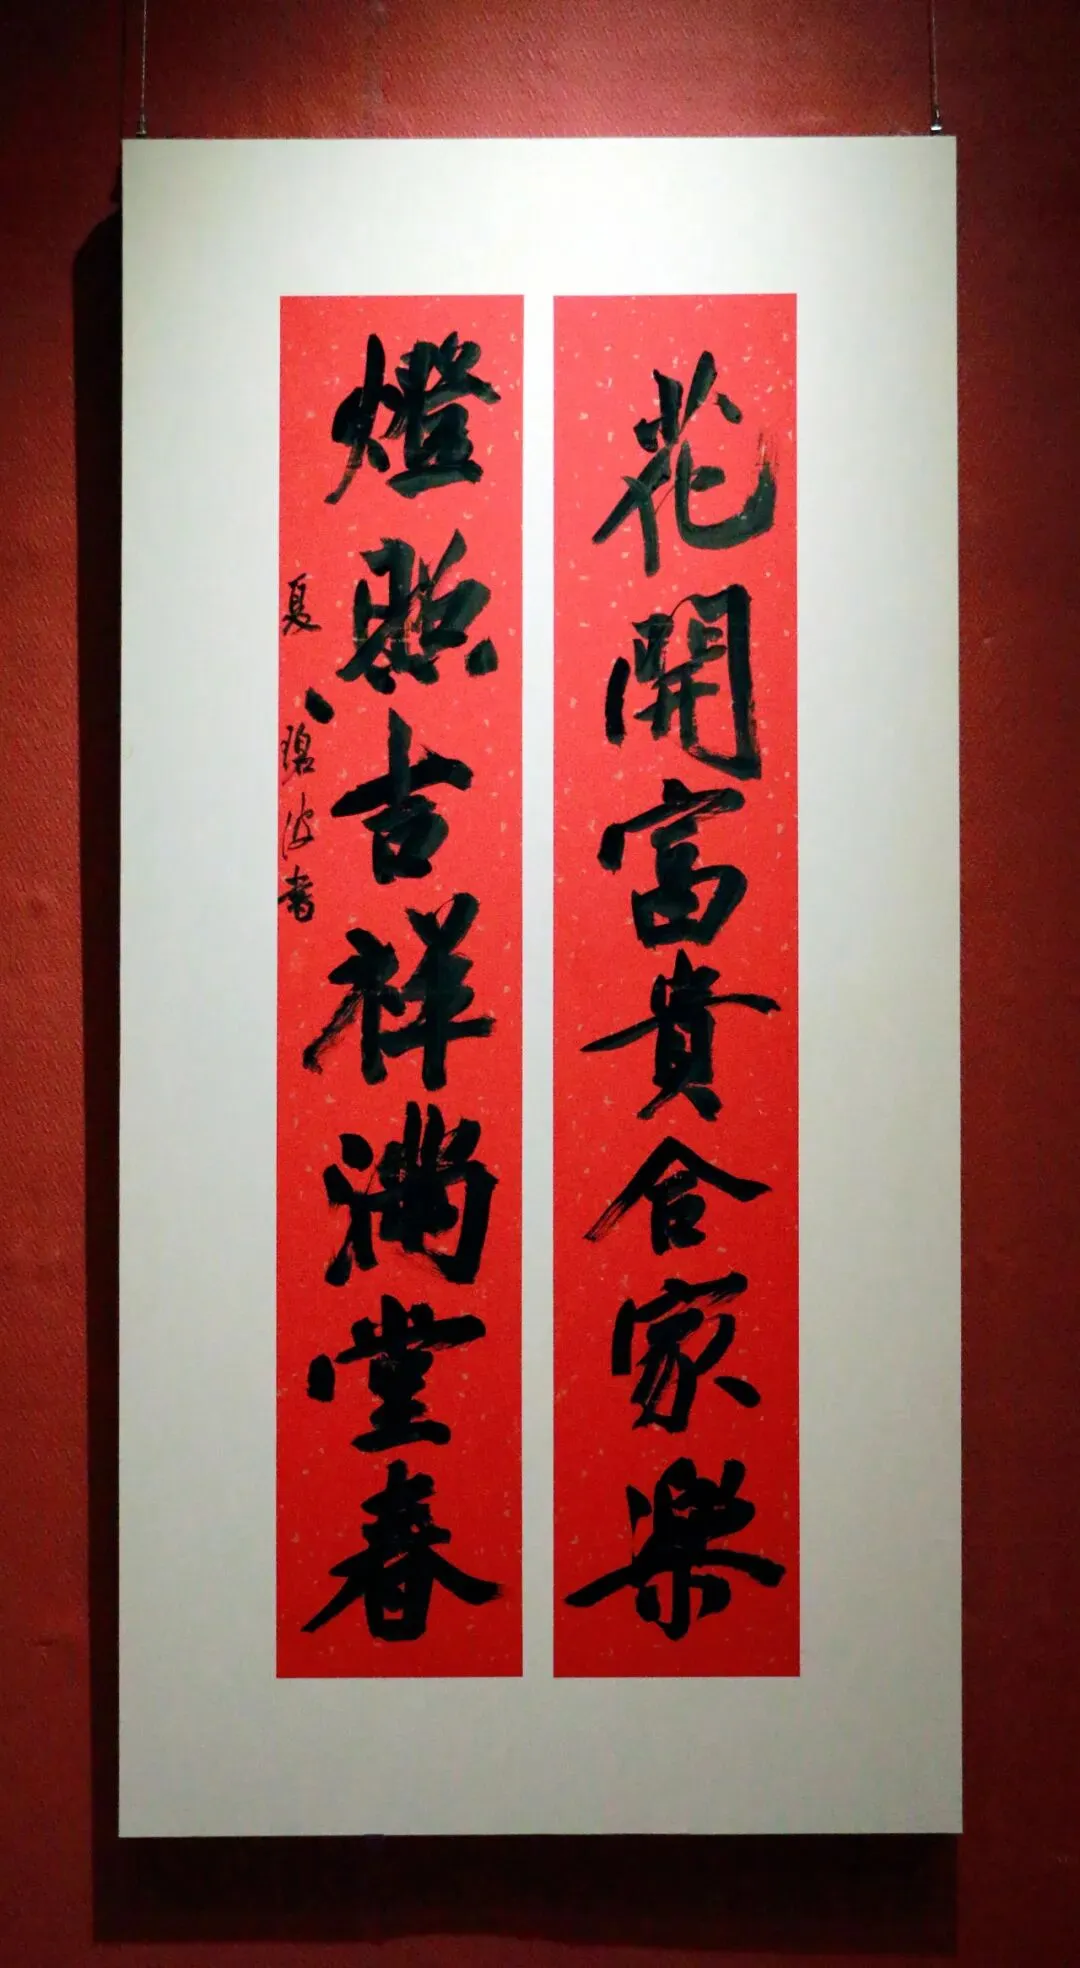 花開富貴合家樂
燈照吉祥滿堂春
夏碧波書